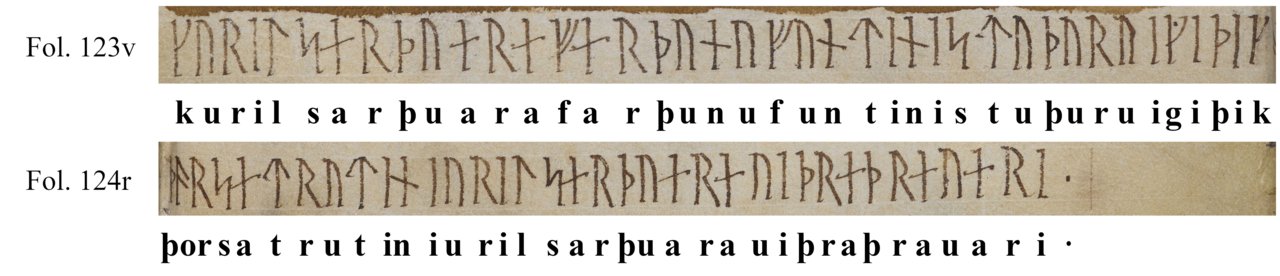 Fol. 123v
ᚴᚢᚱᛁᛚᛋᛅᚱᚦᚢᛅᚱᛅᚠᛅᚱᚦᚢᚾᚢᚠᚢᚾᛏᛁᚾᛁᛋᛏᚢᚦᚢᚱᚢᛁᚵᛁᚦᛁᚴ
kuril sarþuarafarþunufuntinistuþuruigiþik
Fol. 124r
ᚦᚮᚱᛋᛅᛏᚱᚢᛏᛁᚾᛁᚢᚱᛁᛚᛋᛅᚱᚦᚢᛅᚱᛅᚢᛁᚦᚱᛅᚦᚱᛅᚢᛅᚱᛁ᛫
þorsatrutin iuril sarþuarauiþraþrauari ·